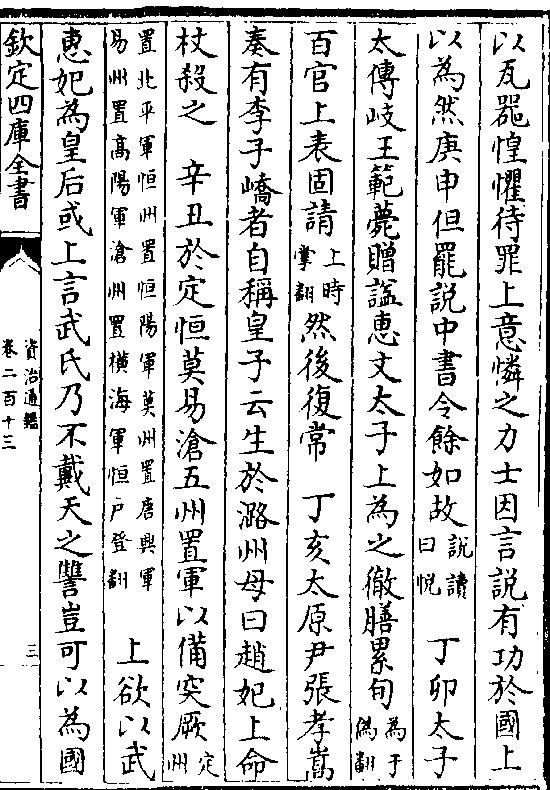 以瓦器惶懼待罪上意憐之力士因言說有功於國上
以為然庚申但罷說中書令餘如故說讀曰悅　丁卯太子
太傅岐王範薨贈謚惠文太子上為之徹膳累旬為于偽翻
百官上表固請上時掌翻然後復常　丁亥太原尹張孝嵩
奏有李子嶠者自稱皇子云生於潞州母曰趙妃上命
杖殺之　辛丑於定恒莫易滄五州置軍以備突厥定州
置北平軍恒州置恒陽軍莫州置唐興軍易州置高陽軍滄州置橫海軍恒戶登翻　上欲以武
惠妃為皇后或上言武氏乃不戴天之讐豈可以為國
欽定四庫全書
資治通鑑
卷二百十三
三